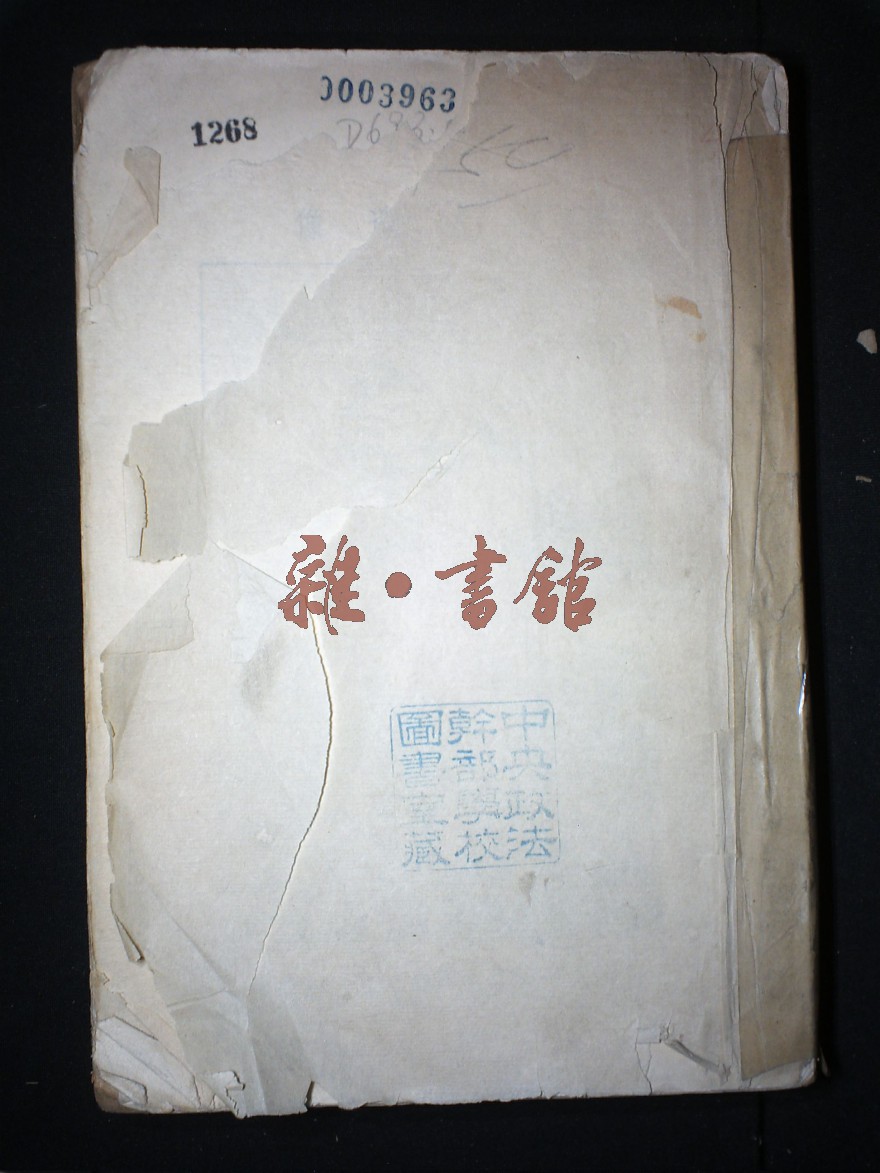 0003963
1268
雜·書館
中央政法
幹部學校
圖書室藏